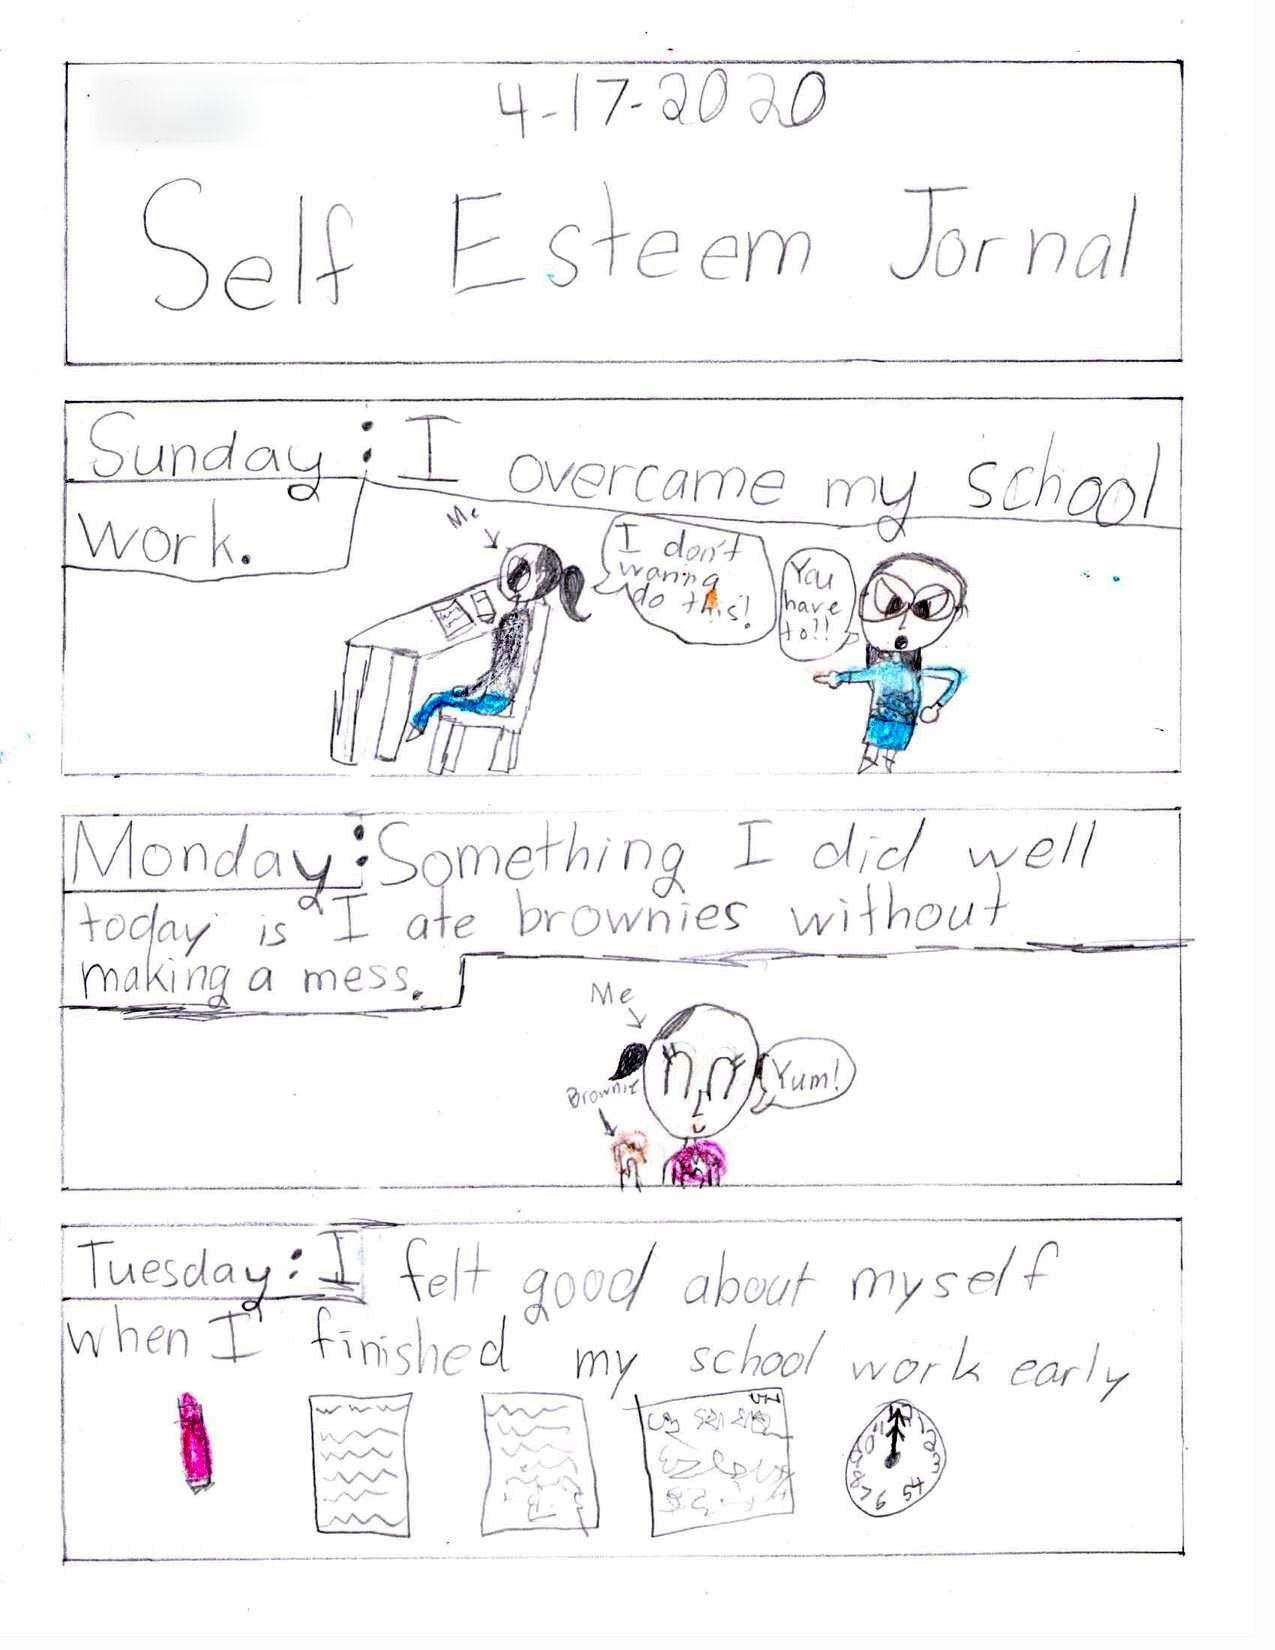 4-17-2020
Self Esteem Jornal
Sunday: I overcame my school
work.
Me
I don't
wanna
do this!
You
have
to!!
Monday: Something I did well
today is I ate brownies without
making a mess.
Me
Brownie
Yum!
Tuesday: I felt good about myself
when I finished my school work early